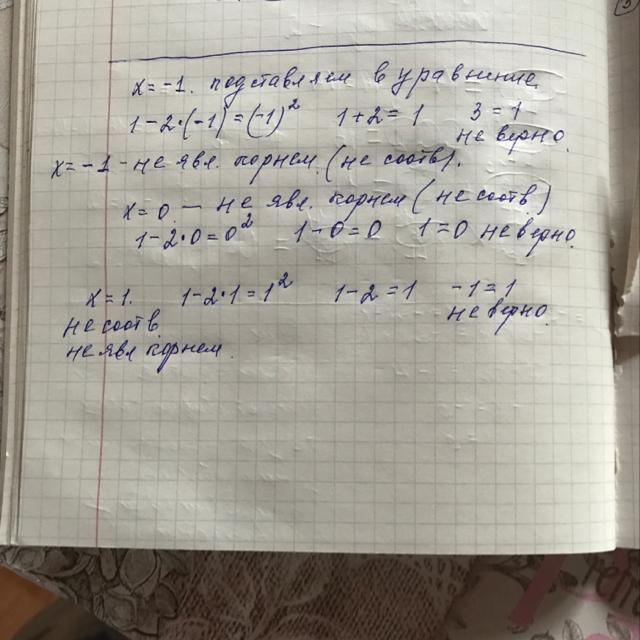 x=-1. подставляем в уравнение.
1-2·(-1)=(-1)² 1+2=1 3=1
не верно.
x=-1 - не явл. корнем. (не соотв).
x=0 — не явл. корнем (не соотв)
1-2·0=0² 1-0=0 1=0 не верно.
x=1. 1-2·1=1² 1-2=1 -1=1
не соотв не верно.
не явл корнем.